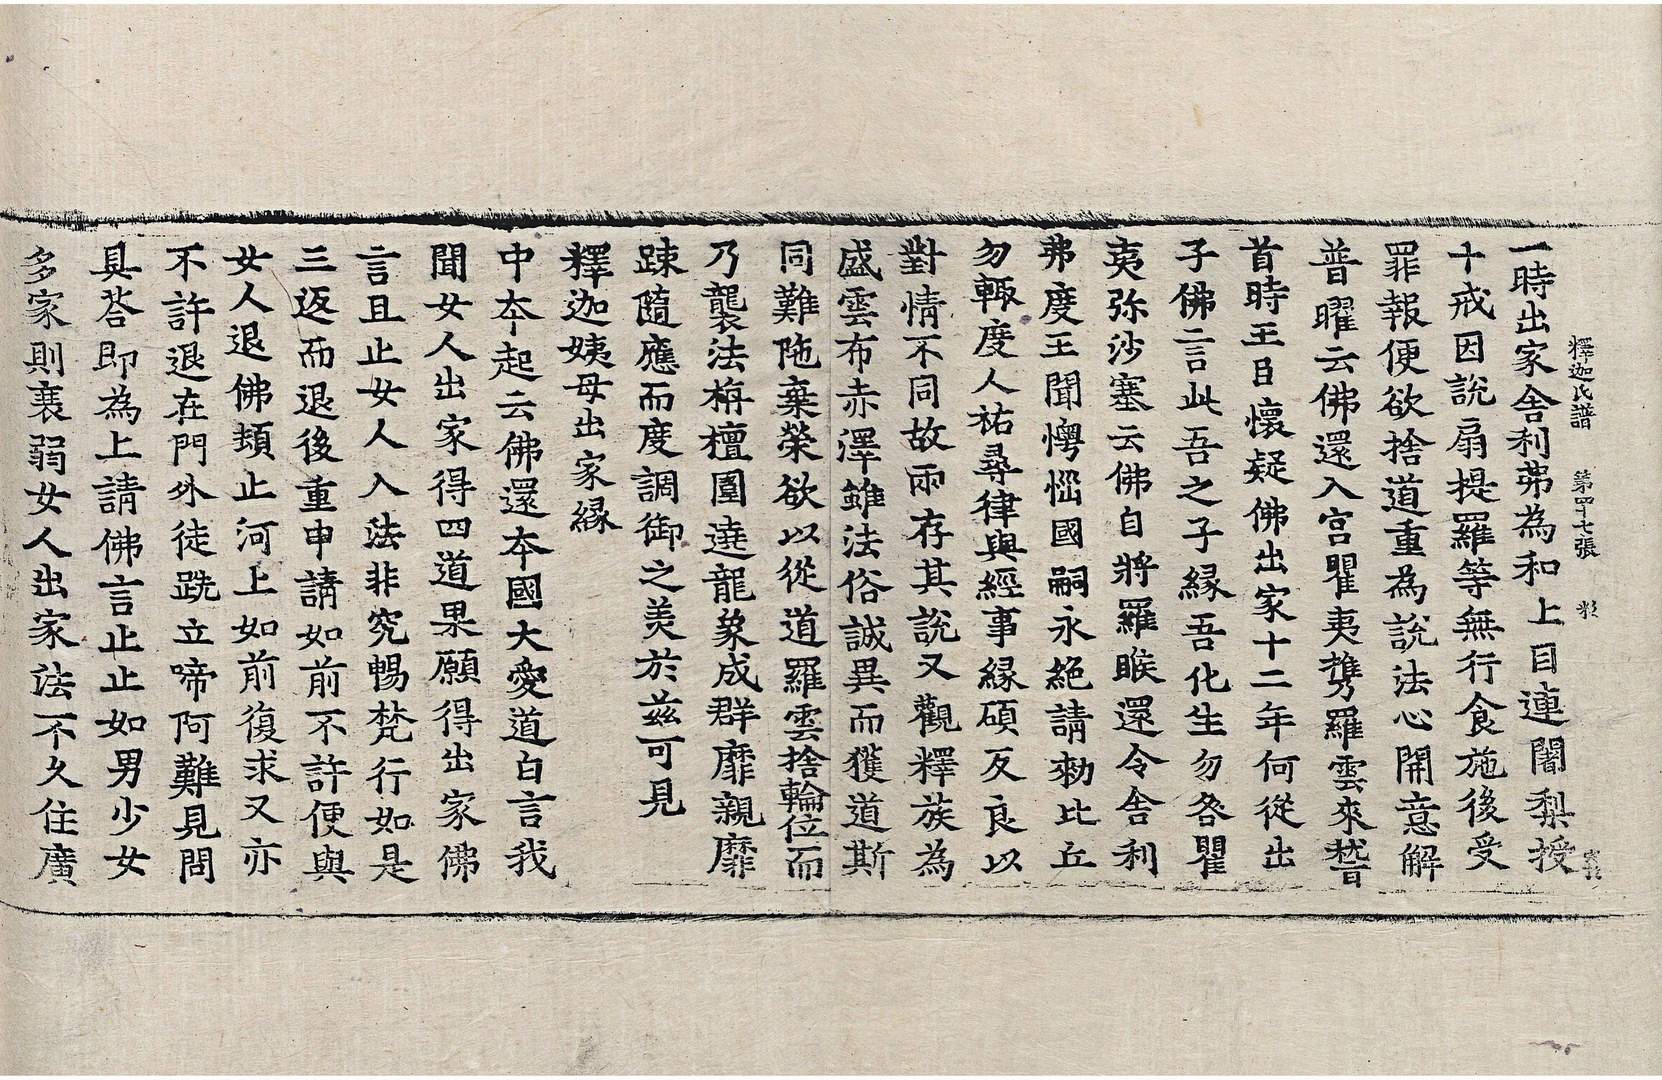 釋迦氏譜 第四十七張 彩
一時出家舍利弗為和上目連闍梨授
十戒因說扇提羅等無行食施後受
罪報便欲捨道重為說法心開意解
普曜云佛還入宮瞿夷携羅雲來嵆首
首時王目懷疑佛出家十二年何從出
子佛言此吾之子緣吾化生勿咎瞿
夷弥沙塞云佛自將羅睺還令舍利
弗度王聞懊惱國嗣永絕請勑比丘
勿輙度人祐尋律與經事緣碩反良以
對情不同故兩存其說又觀釋族為
盛雲布赤澤雖法俗誠異而獲道斯
同難陁棄榮欲以從道羅雲捨輪位而
乃襲法栴檀圍遶龍象成群靡親靡
踈隨應而度調御之美於茲可見
釋迦姨母出家緣
中夲起云佛還夲國大愛道白言我
聞女人出家得四道果願得出家佛
言且止女人入法非究暢梵行如是
三返而退後重申請如前不許便與
女人退佛頻止河上如前復求又亦
不許退在門外徒跣立啼阿難見問
具荅即為上請佛言止止如男少女
多家則衰弱女人出家法不久住廣